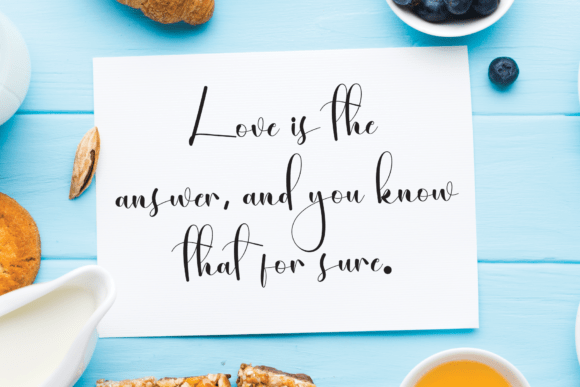 Love is the
answer, and you know
that for sure.